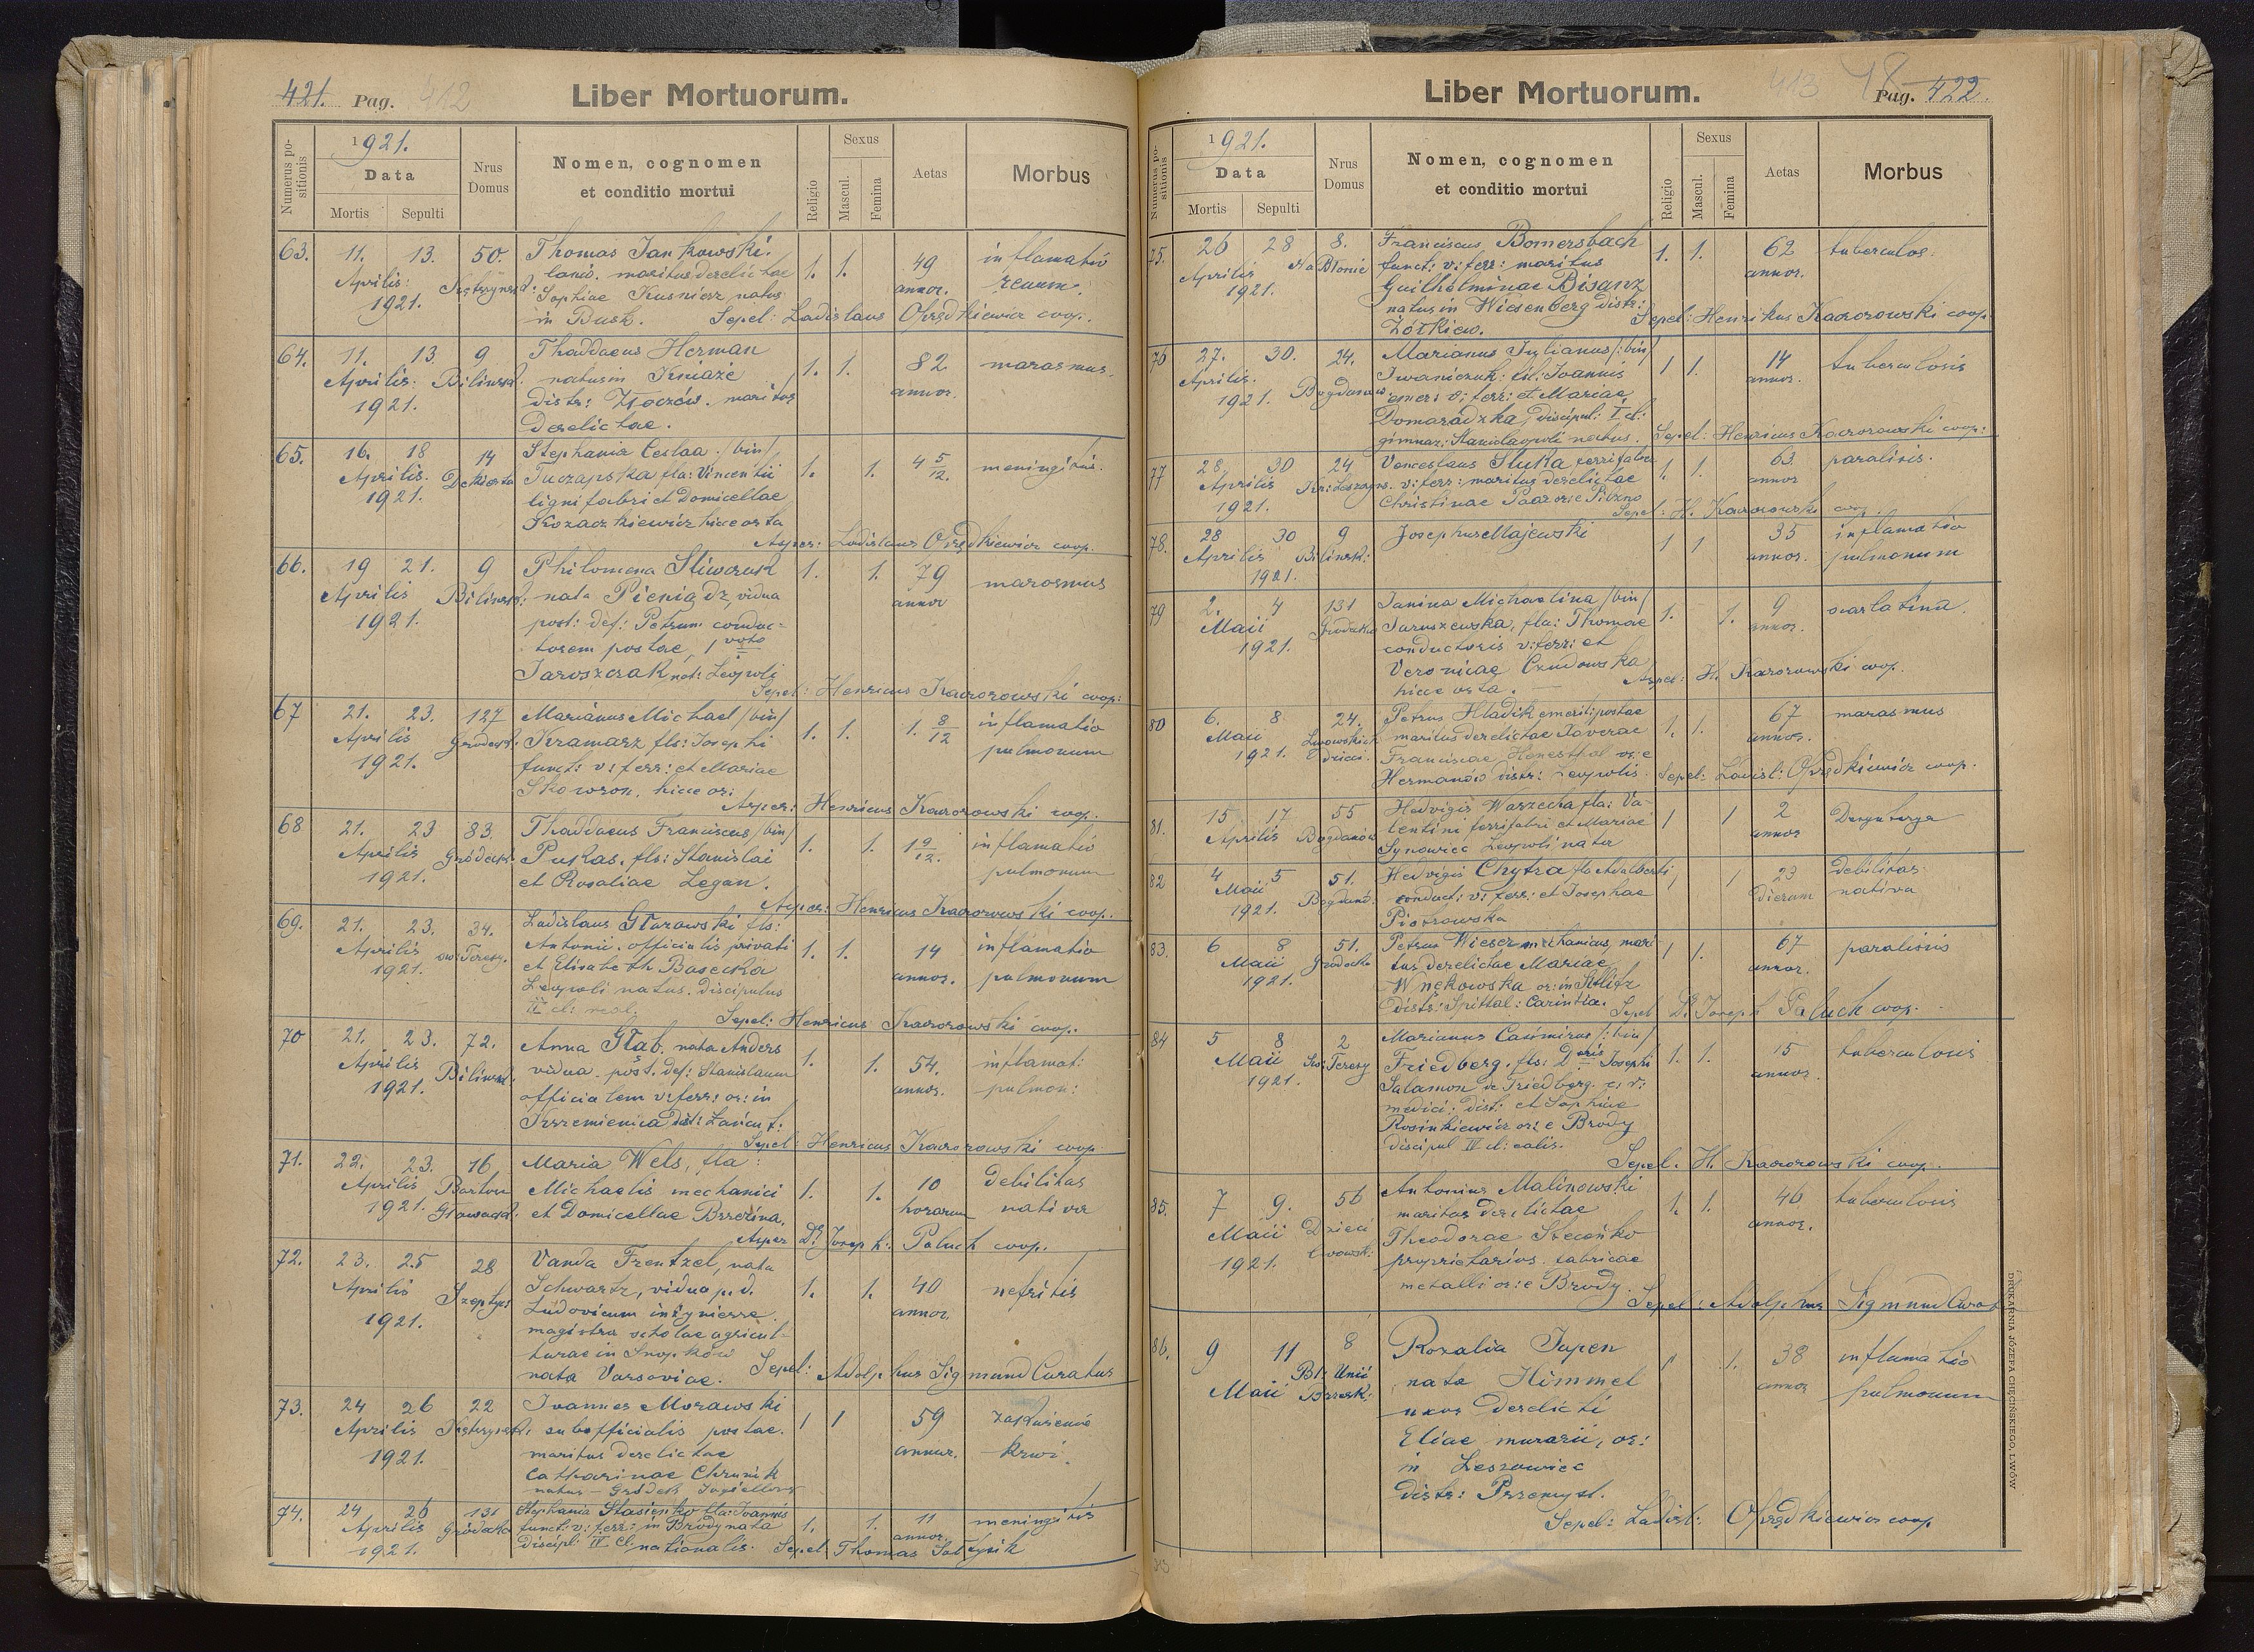 421. Pag. 412
Liber Mortuorum.
Numerus positionis
1921.
Data
Mortis Sepulti
Nrus Domus
Nomen, cognomen
et conditio mortui
Religio
Sexus
Mascul.
Femina
Aetas
Morbus
63. 11. 13. 50. Thomas Jankowski.
lanio. maritus derelictae 1. 1. 49 inflamatio
Aprilis: Sophiae Kusnierz natus annor. renum.
1921. in Busk. Sepel: Ladislaus Obrędkiewicz coop.
64. 11. 13 9 Thaddaeus Herman
Aprilis: Bilinsk. natus in Kniaże 1. 1. 82 marasmus.
1921. distr: Złoczów. maritus annor.
derelictae.
65. 16. 18 14 Stephania Ceslaa /bin/
Aprilis. Dekierta Tuczapska fla: Vincentii 1. 1. 4 5/12. meningitis.
1921. ligni fabri et Domicellae
Kozaczkiewicz hic orta
Asper: Ladislaus Obrędkiewicz coop.
66. 19 21. 9 Philomena Sliwczuk 1. 1. 79 marasmus
Aprilis Bilinsk: nata Pieniądz, vidua annor
1921. post: def: Petrum conduc-
torem postae, 1 voto
Jaroszczak nat: Leopoli
Sepel: Henricus Kaczorowski coop:
67 21. 23. 127 Marianus Michael /bin/
Aprilis Grodeck. Kramarz fls: Josephi 1. 1. 1. 8/12 inflamatio
1921. funct: v: ferr: et Mariae pulmonum
Skowron, hic or:
Asper: Henricus Kaczorowski coop.
68 21. 23 83 Thaddaeus Franciscus /bin/
Aprilis Gródeck. Pukas. fls: Stanislai 1. 1. 1 9/12. inflamatio
1921. et Rosaliae Legan. pulmonum
Asper: Henricus Kaczorowski coop.
69. 21. 23. 34. Ladislaus Starowski fls:
Aprilis św: Teresy. Antonii. officialis privati 1. 1. 14 inflamatio
1921. et Elisabeth Basecka annor. pulmonum
Leopoli natus. discipulus
II cl: real.
Sepel: Henricus Kaczorowski coop.
70 21. 23. 72. Anna Głąb. nata Anders
Aprilis Bilinsk. vidua. post. def: Stanislaum 1. 1. 54. inflamat:
1921. officialem v: ferr: or: in annor. pulmon:
Krzemienica dist: Łańcut.
Sepel: Henricus Kaczorowski coop
71. 22. 23. 16 Maria Wels, fla:
Aprilis Bartosz Michaelis mechanici 1. 1. 10 debilitas
1921. Głowack. et Domicellae Brzezina. horarum nativa
Asper Dr. Joseph: Paluch coop.
72. 23. 25 28 Vanda Frentzel, nata
Aprilis Szeptyc: Schwartz, vidua p. d. 1. 1. 40 nefritis
1921. Ludovicum inżynierze annor.
magistra scholae agricul-
turae in Snopków
nata Varsoviae. Sepel: Adolphus Sigmund Curatus
73. 24 26 22 Joannes Morawski
Aprilis subofficialis postae. 1 1 59 zakażenie
1921. maritus derelictae annor. krwi.
Catharinae Chrunik
natus - Gródek Jagiellon
74. 24 26 131 Stephania Stasieńko fla: Joannis
Aprilis Gródecka funct: v: ferr: in Brody nata 1. 1. 11 meningitis
1921. discipl: IV cl. nationalis. annor.
Sepel Thomas
413 Pag. 422.
Liber Mortuorum.
Numerus positionis
1921.
Data
Mortis Sepulti
Nrus Domus
Nomen, cognomen
et conditio mortui
Religio
Sexus
Mascul.
Femina
Aetas
Morbus
75. 26 28 8. Franciscus Bomersbach
Aprilis Na Błonie funct: v: ferr: maritus 1. 1. 62 tuberculos.
1921. Guilhelminae Bisanz annor.
natus in Wiesenberg distr:
Żółkiew. Sepel: Henrikus Kaczorowski coop.
76 27. 30. 24. Marianus Julianus /:bin/
Aprilis. Bogdanów Iwaniczuk: fil: Joannis 1 1. 14 tuberculosis
1921. emer: v: ferr: et Mariae annor.
Domaradzka, discipul: I cl:
gimnaz: Stanislaopoli natus. Sepel: Henricus Kaczorowski coop:
77 28. 30 24 Venceslaus Sluka ferrifaber 1. 1. 63 paralisis.
Aprilis v: ferr: maritus derelictae annor
1921. Christinae or: e Pilzno
Sepel: H. Kaczorowski coop.
78. 28 30 9 Josephus Majewski 1 1 35 inflamatio
Aprilis Bilinsk: annor. pulmonum
1921.
79 2. 4 131 Janina Michaelina /bin/
Maii Grodecka Jaruszewska, fla: Thomae 1. 1. 9 scarlatina.
1921. conductoris v: ferr: et annor.
Veronicae Czudowska
hic orta. Asper: H. Kaczorowski coop.
80 6. 8 24. Petrus Hladik emerit: postae 67 marasmus
Maii Lwowskich dzieci. maritus derelictae Xaverae 1. 1. annor.
1921. Franciscae Honesthal or: e
Hermanów distr: Leopolis. Sepel: Ladisl: Obrędkiewicz coop.
81. 15 17 55 Hedvigis Warzecha fla: Va-
Aprilis Bogdanów lentini ferrifabri et Mariae 1 1 2 Desynterya
Synowiec Leopoli nata annor
82 4 5 51. Hedvigis Chytra fla Adalberti 1 23 debilitas
Maii Bogdanó: conduct: v: ferr: et Josephae dierum nativa
1921. Piotrowska
83. 6 8 51. Petrus Wieser mechanicus, mari
Maii Grodecka tus derelictae Mariae 1 1. 67 paralisis
1921. Wnękowska or: in annor.
distr: Spittal: Carintia. Sepel Dr. Joseph Paluch coop.
84 5 8 2 Marianus Casimirus /:bin/
Maii św: Teresy Friedberg. fls: Doris Josephi 1. 1. 15 tuberculosis
1921. Salamon de Friedberg. c: r: annor.
medici: dist: et Sophiae
Rosinkiewicz or: e Brody
discipul IV cl: ealis.
Sepel. H. Kaczorowski coop.
85. 7 9. 56 Antonius Malinowski
Maii Dzieci Lwowsk: maritus derelictae 1. 1. 46 tuberculosis
1921 Theodorae Stecińko annor.
proprietarius fabricae
metalli or: e Brody.
Sepel: Adolphus Sigmund Curat
86. 9 11 8 Rozalia Jupen
Maii Bł: Unii Brzesk: nata Himmel 1 1. 38 inflamatio
uxor derelicti annor pulmonum
Eliae murarii, or:
in Leszowiec
distr: Przemysl.
Sepel: Ladisl: Obrędkiewicz coop
DRUKARNIA JÓZEFA CHĘCIŃSKIEGO, LWÓW